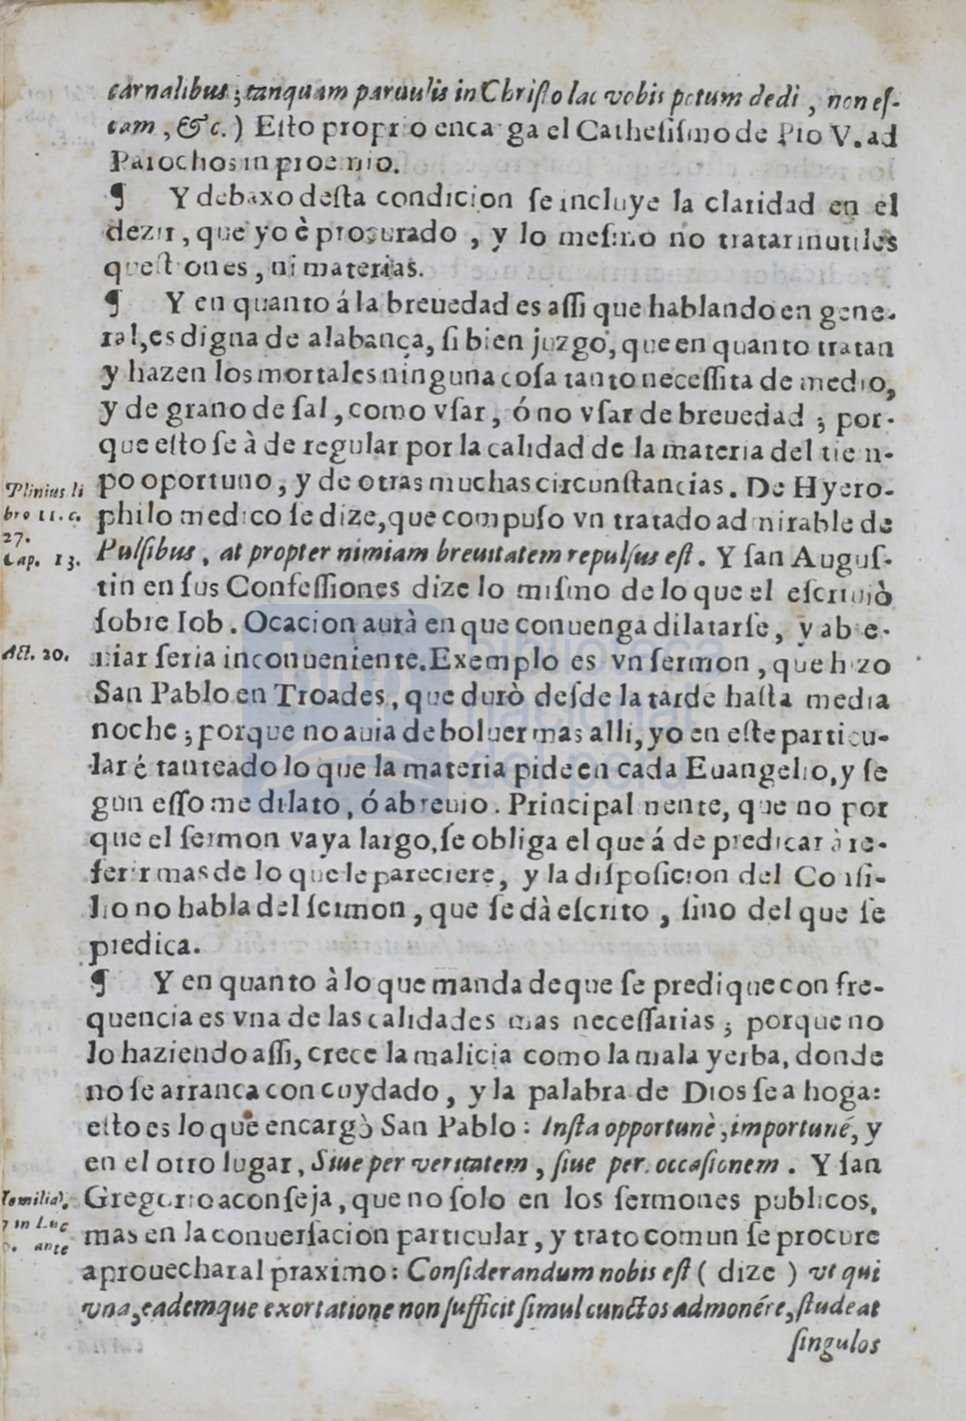 carnalibus; tanquam paruulis in Christo lac vobis potum dedi, non es-
cam, &c.) Esto propr o enca ga el Cathesismo de Pio V. ad
Parochos in proemio.
¶ Y debaxo desta condicion se incluye la claridad en el
dezir, que yo è procurado, y lo mesmo no tratar inutiles
quest ones, ni materias.
¶ Y en quanto á la breuedad es assi que hablando en gene-
ral, es digna de alabança, si bien juzgo, que en quanto tratan
y hazen los mortales ninguna cosa tanto necessita de medio,
y de grano de sal, como vsar, ó no vsar de breuedad; por-
que esto se à de regular por la calidad de la materia del tien-
po oportuno, y de otras muchas circunstancias. De Hyero-
Plinius li
bro 11. c.
27.
Cap. 13.
philo medico se dize, que compuso vn tratado admirable de
Pulsibus, at propter nimiam breuitatem repulsus est. Y san Augus-
tin en sus Confessiones dize lo mismo de lo que el escriuiò
sobre Iob. Ocacion aurà en que conuenga dilatarse, y ab e-
Act. 20.
uiar seria inconueniente. Exemplo es vn sermon, que hizo
San Pablo en Troades, que durò desde la tarde hasta media
noche; porque no auia de boluer mas alli, yo en este particu-
lar é tanteado lo que la materia pide en cada Euangelio, y se
gun esso me dilato, ó abreuio. Principalmente, que no por
que el sermon vaya largo, se obliga el que á de predicar à re-
ferir mas de lo que le pareciere, y la disposicion del Consi-
lio no habla del sermon, que se dà escrito, sino del que se
predica.
¶ Y en quanto à lo que manda de que se predique con fre-
quencia es vna de las calidades mas necessarias; porque no
lo haziendo assi, crece la malicia como la mala yerba, donde
no se arranca con cuydado, y la palabra de Dios se ahoga:
esto es lo que encargò San Pablo: Insta opportunè, importunè, y
en el otro lugar, Siue per veritatem, siue per occasionem. Y san
Gregorio aconseja, que no solo en los sermones publicos,
in Luc
ante
mas en la conuersacion particular, y trato comun se procure
aprouechar al praximo: Considerandum nobis est (dize) vt qui
vna, eademque exortatione non sufficit simul cunctos admonére, studeat
singulos
biblioteca
nacional
del perú